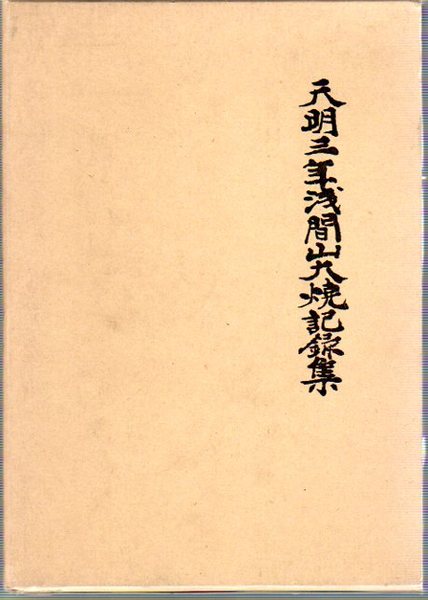 天明三年浅間山大焼記録集